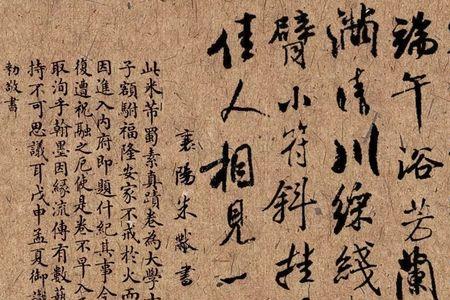 端午浴芳蘭
滿晴川綵綫
臂小符斜挂
佳人相見一
襄陽米黻書
此米芾蜀素真蹟卷為大學士
子額駙福隆安家不戒於火而
因進入內府即題什紀其事今
復遭祝融之厄使是卷不早入
取洵乎翰墨因緣流傳有數藝
持不可思議耳戊申孟夏御識
勅敬書